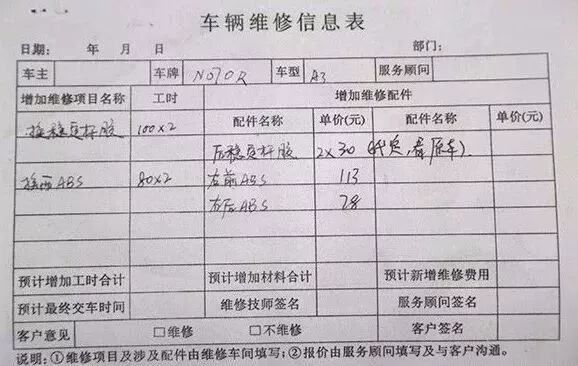 车辆维修信息表
日期： 年 月 日 部门：
车主 车牌 N070R 车型 A3 服务顾问
增加维修项目名称 工时 增加维修配件
配件名称 单价(元) 配件名称 单价(元)
换稳定杆胶 100×2
后稳定杆胶 2×30
换两ABS 80×2 左前ABS 113
右后ABS 78
预计增加工时合计 预计增加材料合计 预计新增维修费用
预计最终交车时间 维修技师签名 服务顾问签名
客户意见 □维修 □不维修 客户签名
说明：①维修项目及涉及配件由维修车间填写；②报价由服务顾问填写及与客户沟通。